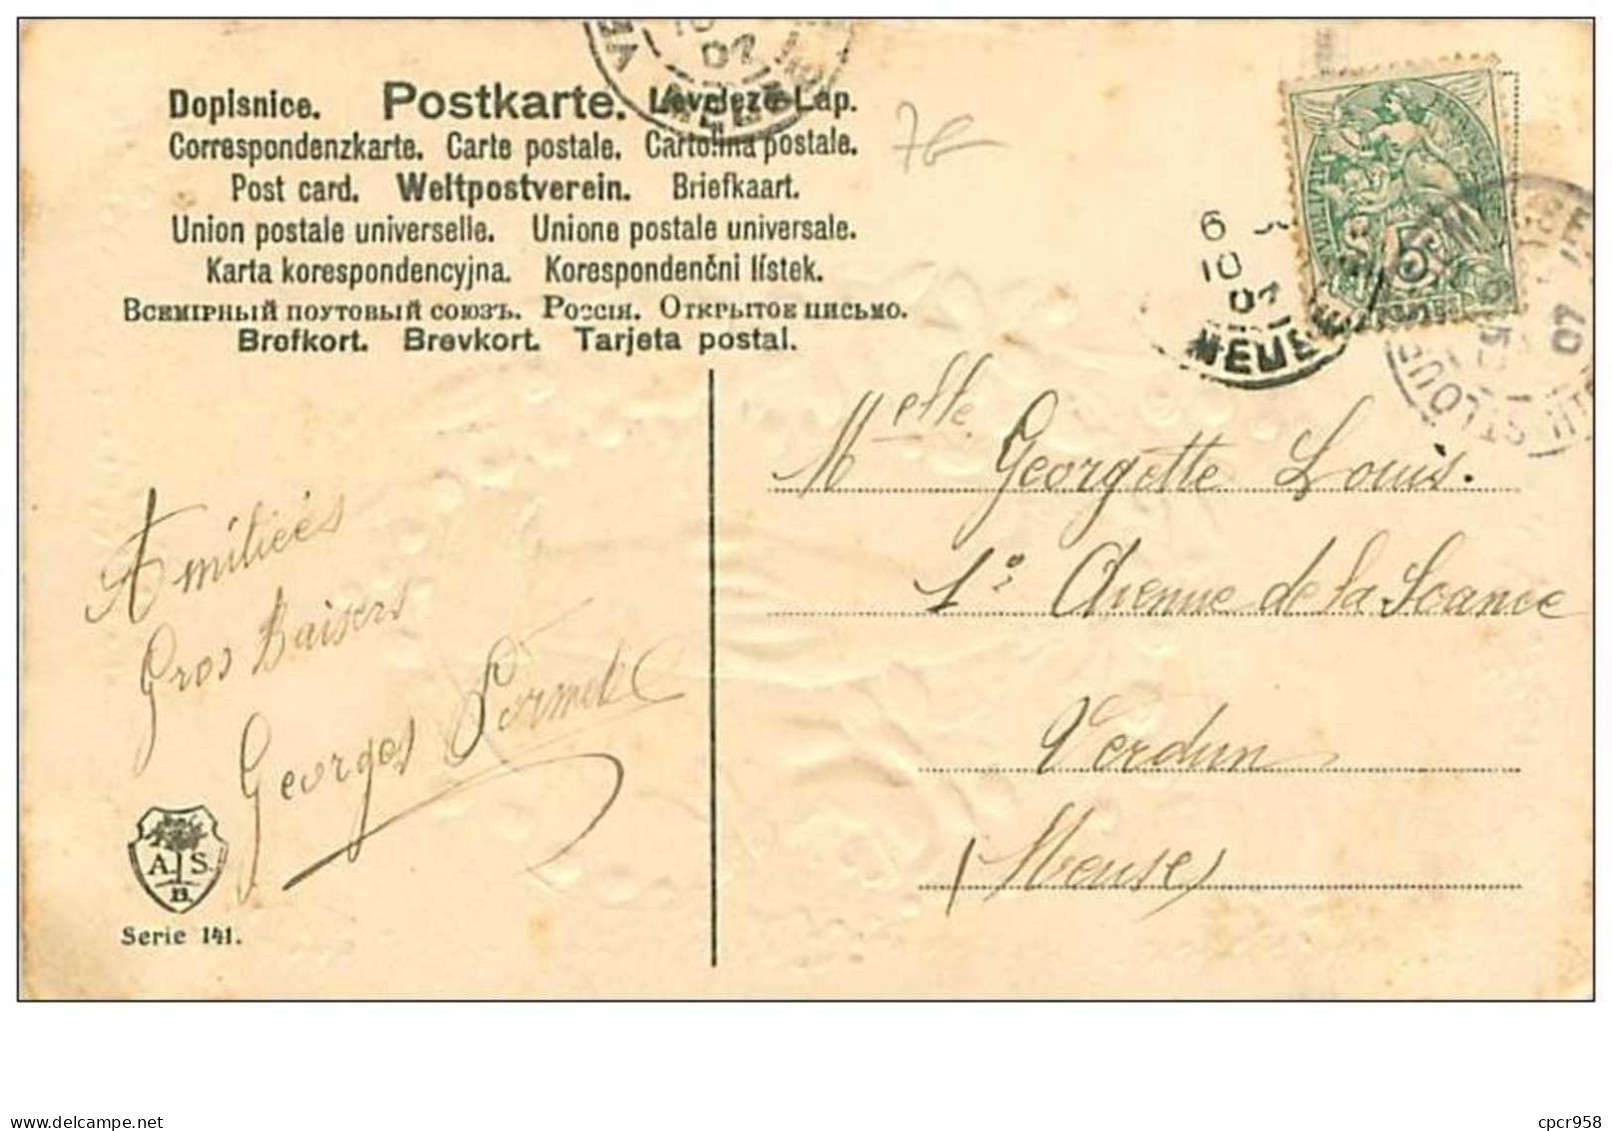 Dopisnice. Postkarte. Levelező-Lap.
Correspondenzkarte. Carte postale. Cartolina postale.
Post card. Weltpostverein. Briefkaart.
Union postale universelle. Unione postale universale.
Karta korespondencyjna. Korespondenční lístek.
Всемірный поутовый союзъ. Россія. Открытое письмо.
Brefkort. Brevkort. Tarjeta postal.
6
10
07
MEUSE
5
07
Melle Georgette Louis.
1o Avenue de la Scance
Verdun
Meuse
Amitiés
Gros Baisers
Georges
A. S.
B.
Serie 141.
delcampe.net
cpcr958